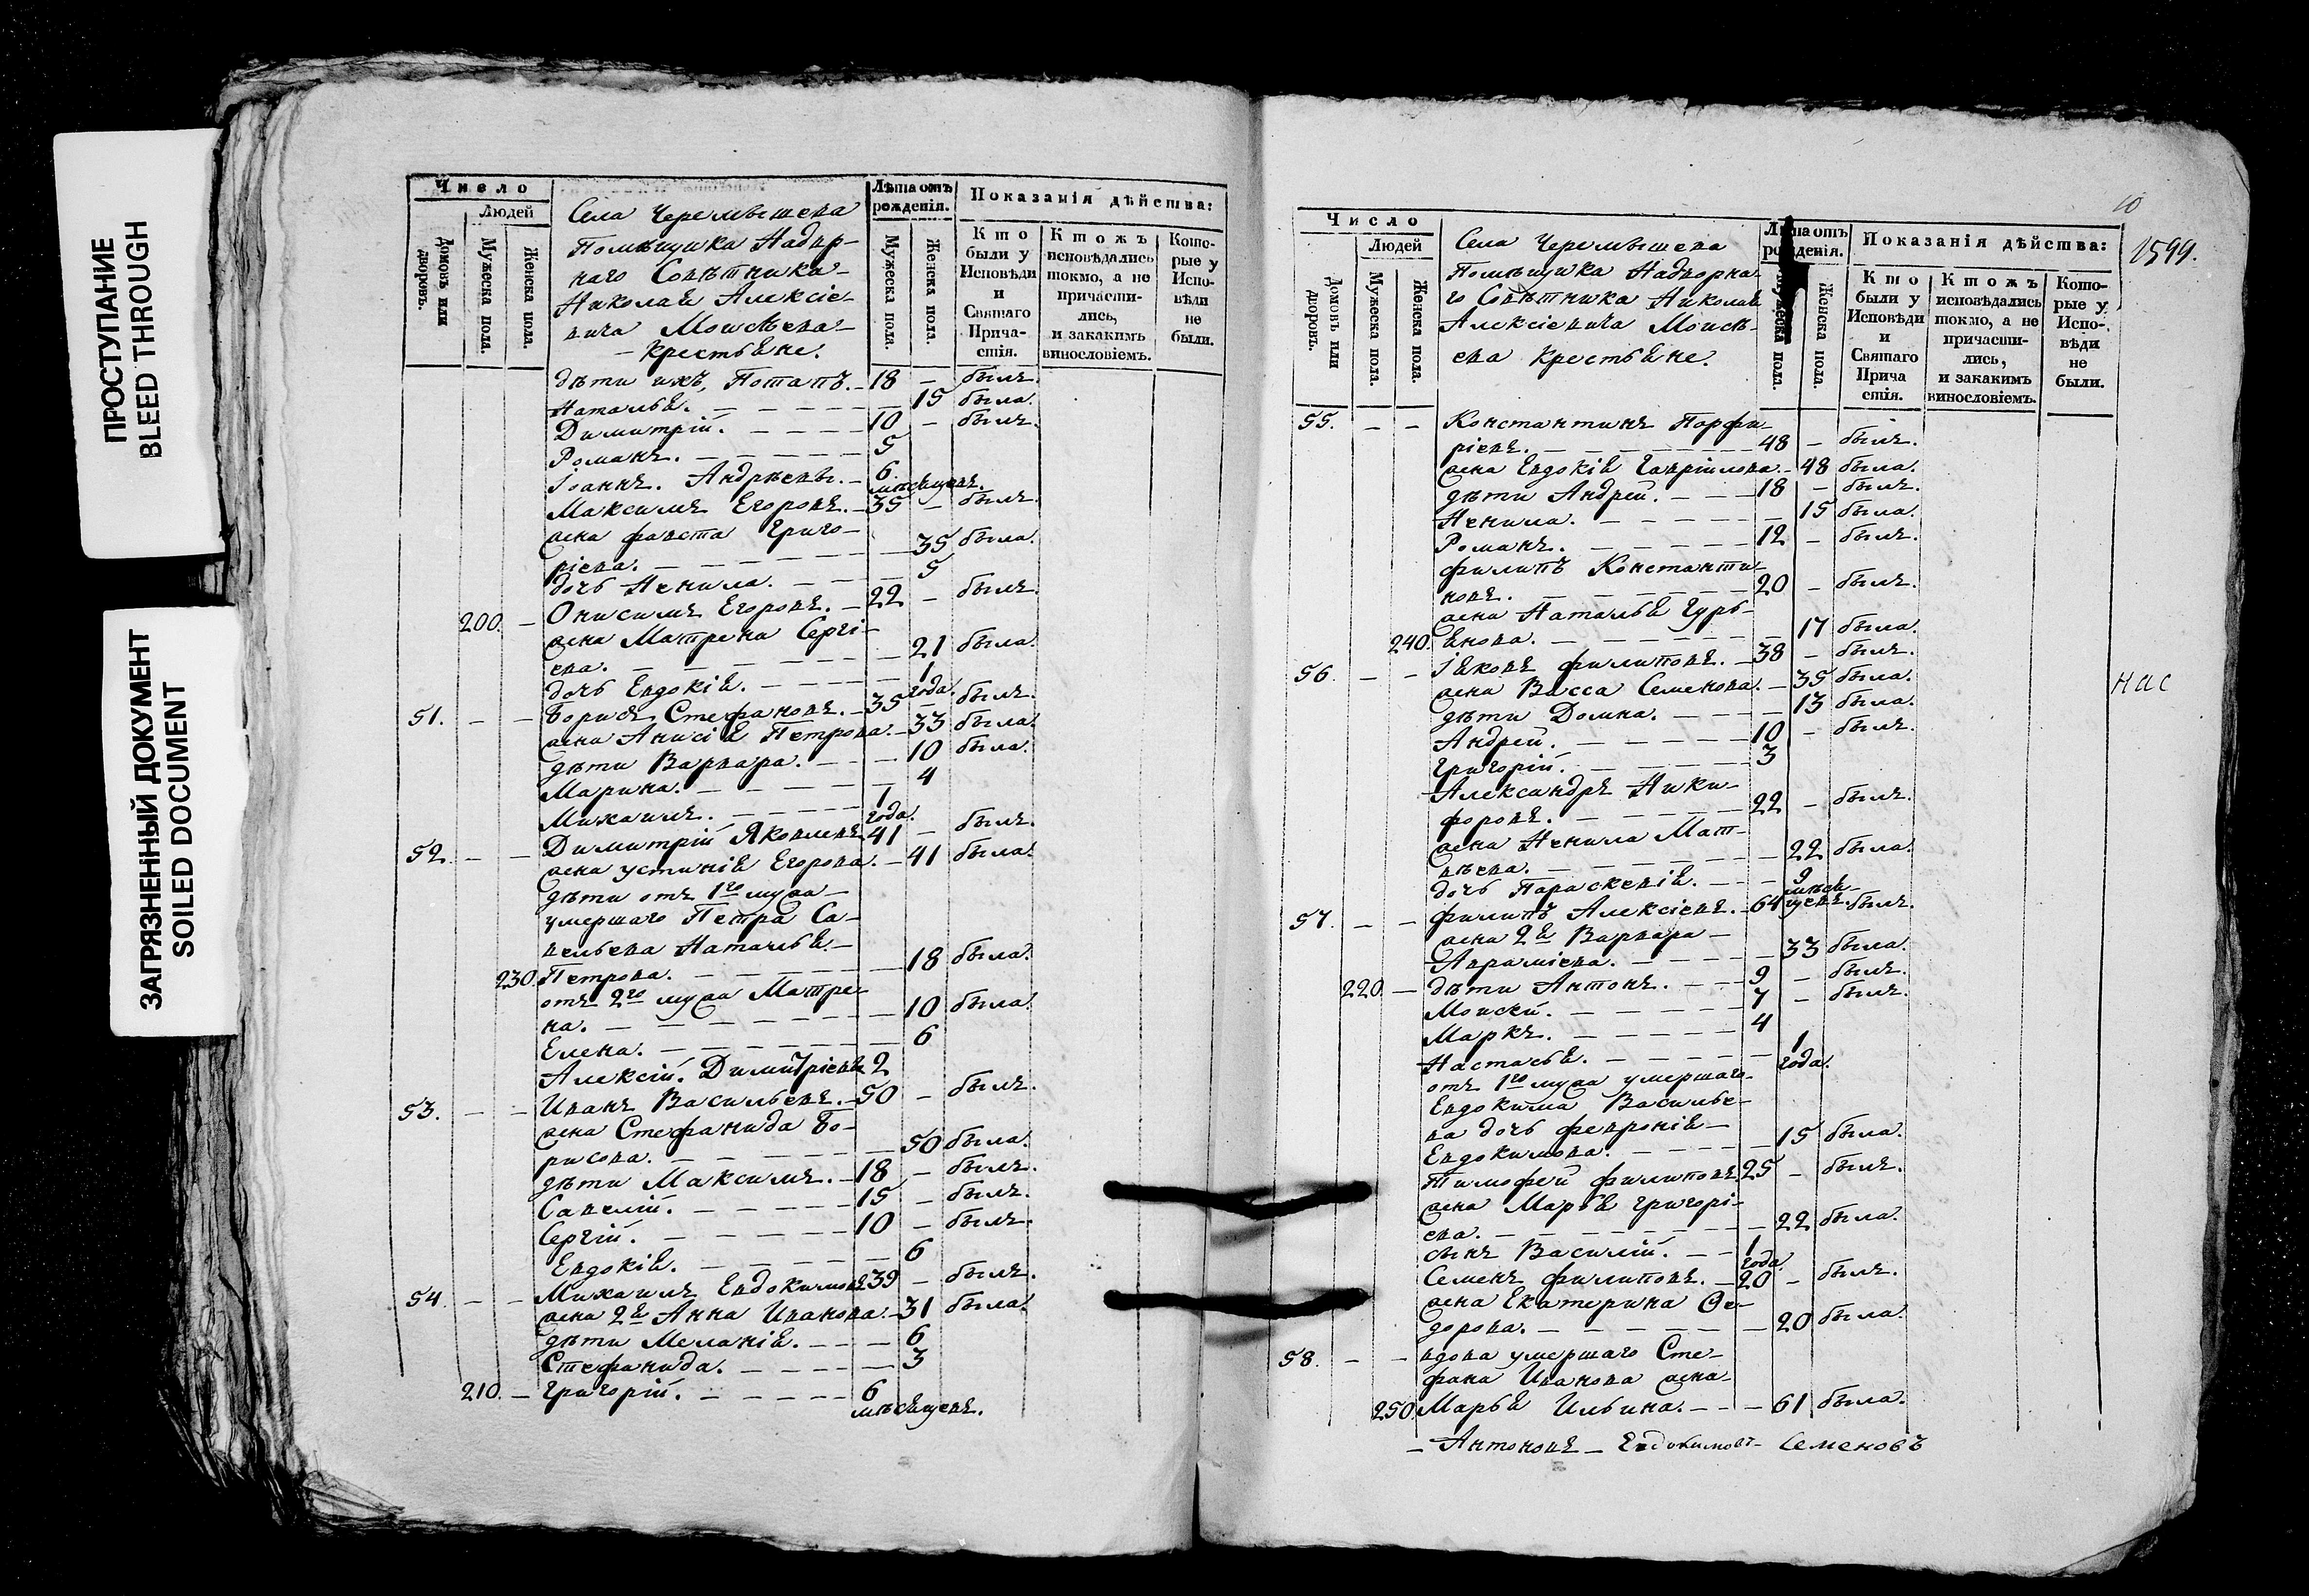 ПРОСТУПАНИЕ
BLEED THROUGH
ЗАГРЯЗНЕННЫЙ ДОКУМЕНТ
SOILED DOCUMENT
Число
Людей
Домовъ или дворовъ.
Мужеска пола.
Женска пола.
Села Черемышева
Помѣщика Надвор-
наго Совѣтника
Николая Алексіе-
вича Моисѣева
крестьяне.
Лѣта отъ рожденія.
Мужеска пола.
Женска пола.
Показанія дѣйства:
Кто были у Исповѣди и Святаго Прича-стія.
Ктожъ исповѣдались токмо, а не причасти-лись, и закакимъ винословіемъ.
Кото-рые у Испо-вѣди не были.
дѣти ихъ, Потапъ. 18 – былъ.
Наталья. – 15 была.
Димитрій. 10 – былъ.
Романъ. 5
Іоаннъ. Андрѣевы. 6 мѣсяцевъ.
Максимъ Егоровъ. 35 – былъ.
жена Фавста Григо-
ріева. – 35 была.
дочь Ненила. – 5
200. – Онисимъ Егоровъ. 22 – былъ.
жена Матрена Сергі-
ева. – 21 была.
дочь Евдокія. – 1 года.
51. – – Борисъ Стефановъ. 35 – былъ.
жена Анисія Петрова. – 33 была.
дѣти Варвара. – 10 была.
Марина. – 4
Михаилъ. 1 года.
52. – – Димитрій Яковлевъ 41 – былъ.
жена Устинія Егорова. – 41 была.
дѣти отъ 1го мужа
умершаго Петра Са-
вельева Наталья
230. Петрова. – 18 была.
отъ 2го мужа Матре-
на. – 10 была.
Елена. – 6
Алексій. Димитріевы 2
53. – – Иванъ Васильевъ. 50 – былъ.
жена Стефанида Бо-
рисова. – 50 была.
дѣти Максимъ. 18 – былъ.
Савелій. 15 – былъ.
Сергій. 10 – былъ.
Евдокія. – 6
54. – – Михаилъ Евдокимовъ 39 – былъ.
жена 2я Анна Иванова. – 31 была.
дѣти Меланія. – 6
Стефанида. – 3
210. – Григорій. 6 мѣсяцевъ.
10
1599.
Число
Людей
Домовъ или дворовъ.
Мужеска пола.
Женска пола.
Села Черемышева
Помѣщика Надворна-
го Совѣтника Николая
Алексіевича Моисѣ-
ева крестьяне.
Лѣта отъ рожденія.
Мужеска пола.
Женска пола.
Показанія дѣйства:
Кто были у Исповѣди и Святаго Прича стія.
Ктожъ исповѣдались токмо, а не причасти-лись, и закакимъ винословіемъ.
Кото-рые у Испо-вѣди не были.
55. – – Константинъ Порфи-
ріевъ. 48 – былъ.
жена Евдокія Гавріилова. – 48 была.
дѣти Андрей. 18 – былъ.
Ненила. – 15 была.
Романъ. 12 – былъ.
Филипъ Константи-
новъ. 20 – былъ.
жена Наталья Гурь-
240. янова. – 17 была.
56. – – Іяковъ Филиповъ. 38 – былъ.
жена Васса Семенова. – 35 была.
дѣти Домна. – 13 была.
Андрей. 10 – былъ.
Григорій. 3
Александръ Ники-
форовъ. 22 – былъ.
жена Ненила Мат-
вѣева. – 22 была.
дочь Параскевія. – 9 мѣся-
цевъ.
57. – – Филипъ Алексіевъ. 64 былъ.
жена 2я Варвара
Авраміева. – 33 была.
220. – дѣти Антонъ. 9 – былъ.
Моисей. 7 – былъ.
Маркъ. 4
Настасья. – 1 года.
отъ 1го мужа умершаго
Евдокима Василье-
ва дочь Февронія
Евдокимова. – 15 была.
Тимофей Филиповъ 25 – былъ.
жена Марья Григорі-
ева. – 22 была.
сынъ Василій. 1 года.
Семенъ Филиповъ. 20 – былъ.
жена Екатерина Ѳе-
дорова. – 20 была.
58. – – вдова умершаго Сте-
фана Иванова жена
250. Марья Ильина. – 61 была.
– Антоновъ – Евдокимовъ – Семеновъ
нас